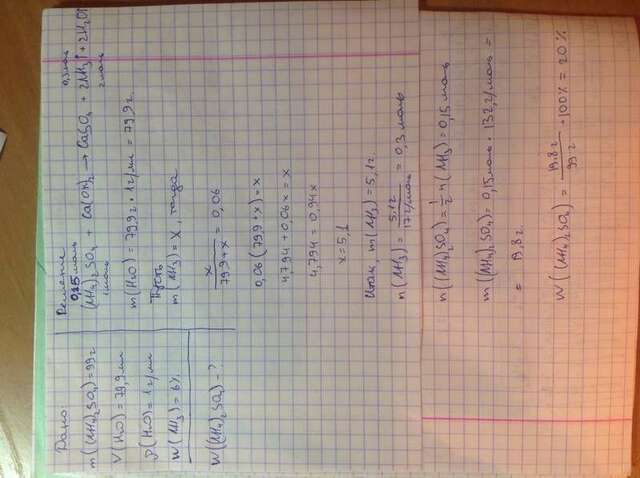 Дано:
m((NH₄)₂SO₄)=99г
V(H₂O)=79,9 мл
ρ(H₂O)=1г/мл
W(NH₃)=6%
W((NH₄)₂SO₄)-?
Решение
0,15 моль 0,3 моль
(NH₄)₂SO₄ + Ca(OH)₂ → CaSO₄ + 2NH₃↑ + 2H₂O
1 моль 2 моль
m(H₂O) = 79,9г · 1г/мл = 79,9г.
Пусть
m(NH₃) = x, тогда
x / 79,9+x = 0,06
0,06(79,9+x)=x
4,794 + 0,06x = x
4,794 = 0,94x
x = 5,1
Итак, m(NH₃) = 5,1г.
n(NH₃) = 5,1г / 17г/моль = 0,3 моль
n((NH₄)₂SO₄) = 1/2 n(NH₃) = 0,15 моль
m((NH₄)₂SO₄) = 0,15 моль · 132г/моль =
= 19,8г.
W((NH₄)₂SO₄) = 19,8г / 99г · 100% = 20%